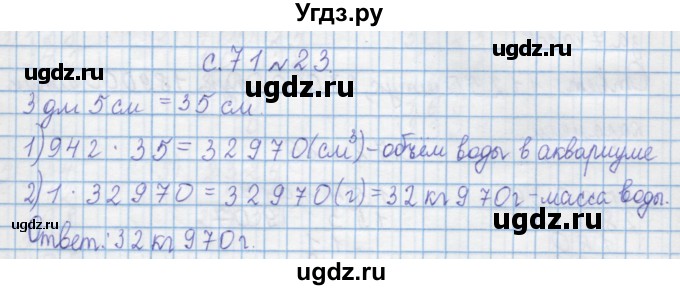 Угдз.ру
с.71 №23.
ugdz.ru ugdz.ru ugdz.ru
3 дм 5 см = 35 см
1) 942 · 35 = 32970 (см³) - объём воды в аквариуме
ugdz.ru ugdz.ru
2) 1 · 32970 = 32970 (г) = 32 кг 970 г - масса воды.
Ответ: 32 кг 970 г.
ugdz.ru ugdz.ru ugdz.ru